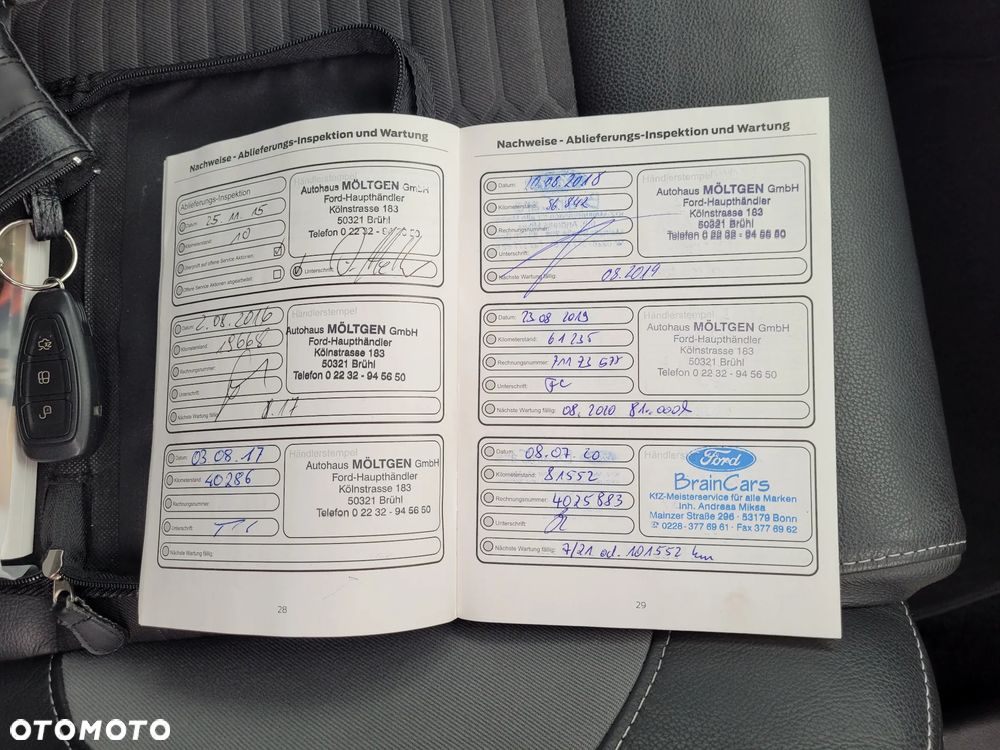 Nachweise - Ablieferungs-Inspektion und Wartung
Ablieferungs-Inspektion
Datum: 25 11. 15
Kilometerstand: 10
Überprüft auf offene Service Aktionen:
Offene Service Aktionen abgearbeitet:
Händlerstempel
Autohaus MÖLTGEN GmbH
Ford-Haupthändler
Kölnstrasse 183
50321 Brühl
Telefon 0 22 32 - 94 56 50
Unterschrift:
Datum: 2.08.2016
Kilometerstand: 19668
Rechnungsnummer:
Unterschrift:
Nächste Wartung fällig: 8.17
Händlerstempel
Autohaus MÖLTGEN GmbH
Ford-Haupthändler
Kölnstrasse 183
50321 Brühl
Telefon 0 22 32 - 94 56 50
Datum: 03 08. 17
Kilometerstand: 40286
Rechnungsnummer:
Unterschrift:
Nächste Wartung fällig:
Händlerstempel
Autohaus MÖLTGEN GmbH
Ford-Haupthändler
Kölnstrasse 183
50321 Brühl
Telefon 0 22 32 - 94 56 50
28
Nachweise - Ablieferungs-Inspektion und Wartung
Datum: 10.08.2018
Kilometerstand: 56842
Rechnungsnummer:
Unterschrift:
Nächste Wartung fällig: 08.2019
Händlerstempel
Autohaus MÖLTGEN GmbH
Ford-Haupthändler
Kölnstrasse 183
50321 Brühl
Telefon 0 22 32 - 94 56 50
Datum: 23 08 2019
Kilometerstand: 61235
Rechnungsnummer:
Unterschrift:
Nächste Wartung fällig: 08. 2020 81.000
Händlerstempel
Autohaus MÖLTGEN GmbH
Ford-Haupthändler
Kölnstrasse 183
50321 Brühl
Telefon 0 22 32 - 94 56 50
Datum: 08.07. 20
Kilometerstand: 81552
Rechnungsnummer: 4025883
Unterschrift:
Nächste Wartung fällig: 7/21 od. 101552 km
Ford
BrainCars
KfZ-Meisterservice für alle Marken
Inh. Andreas Miksa
Mainzer Straße 296 · 53179 Bonn
0228-377 69 61 · Fax 377 69 62
29
OTOMOTO